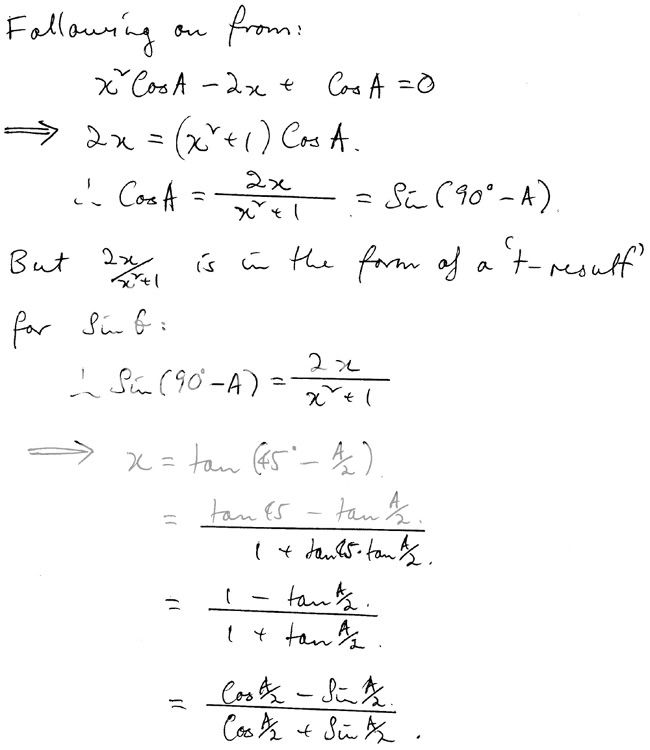 Following on from:
x² Cos A − 2x + Cos A = 0
⟹ 2x = (x² + 1) Cos A.
∴ Cos A = 2x / (x² + 1) = Sin (90° − A)
But 2x/x²+1 is in the form of a 't-result'
for Sin θ:
∴ Sin (90° − A) = 2x / (x² + 1)
⟹ x = tan (45° − A/2).
= (tan 45 − tan A/2.) / (1 + tan 45 · tan A/2.)
= (1 − tan A/2.) / (1 + tan A/2.)
= (Cos A/2 − Sin A/2.) / (Cos A/2 + Sin A/2.)